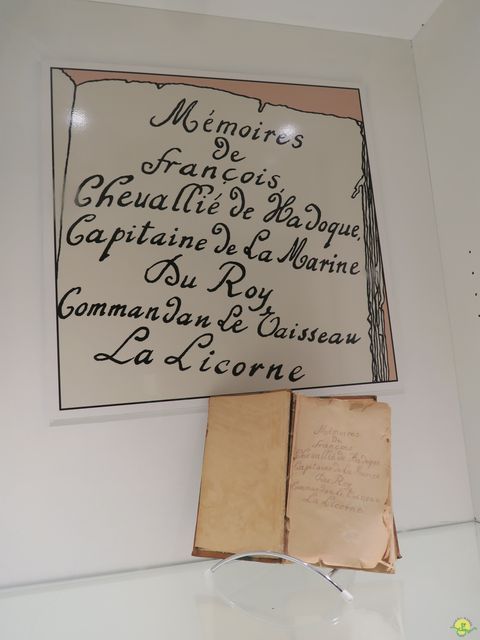 Mémoires
de
françois,
Chevallié de Hadoque,
Capitaine de La Marine
Du Roy,
Commandan Le Vaisseau
La Licorne
Mémoires
De
françois
Chevallié de Hadoque
Capitaine de La Marine
Du Roy
Commandan Le Vaisseau
La Licorne